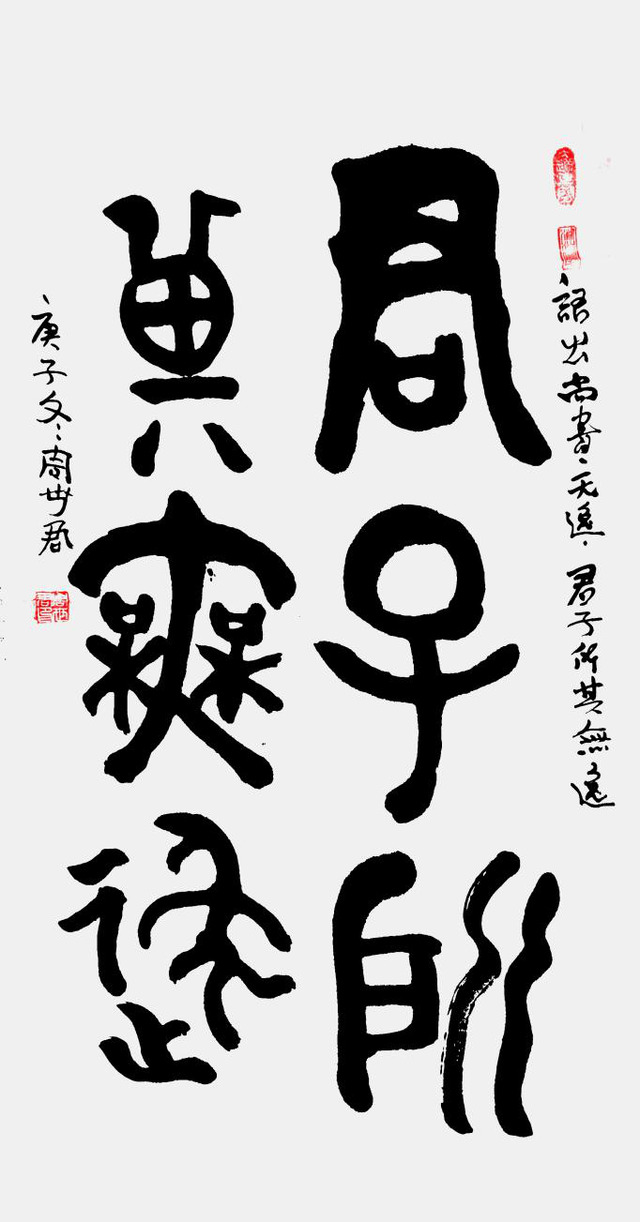 語出尚書、无逸、君子所其無逸
君子所
其無逸
庚子冬、周世君